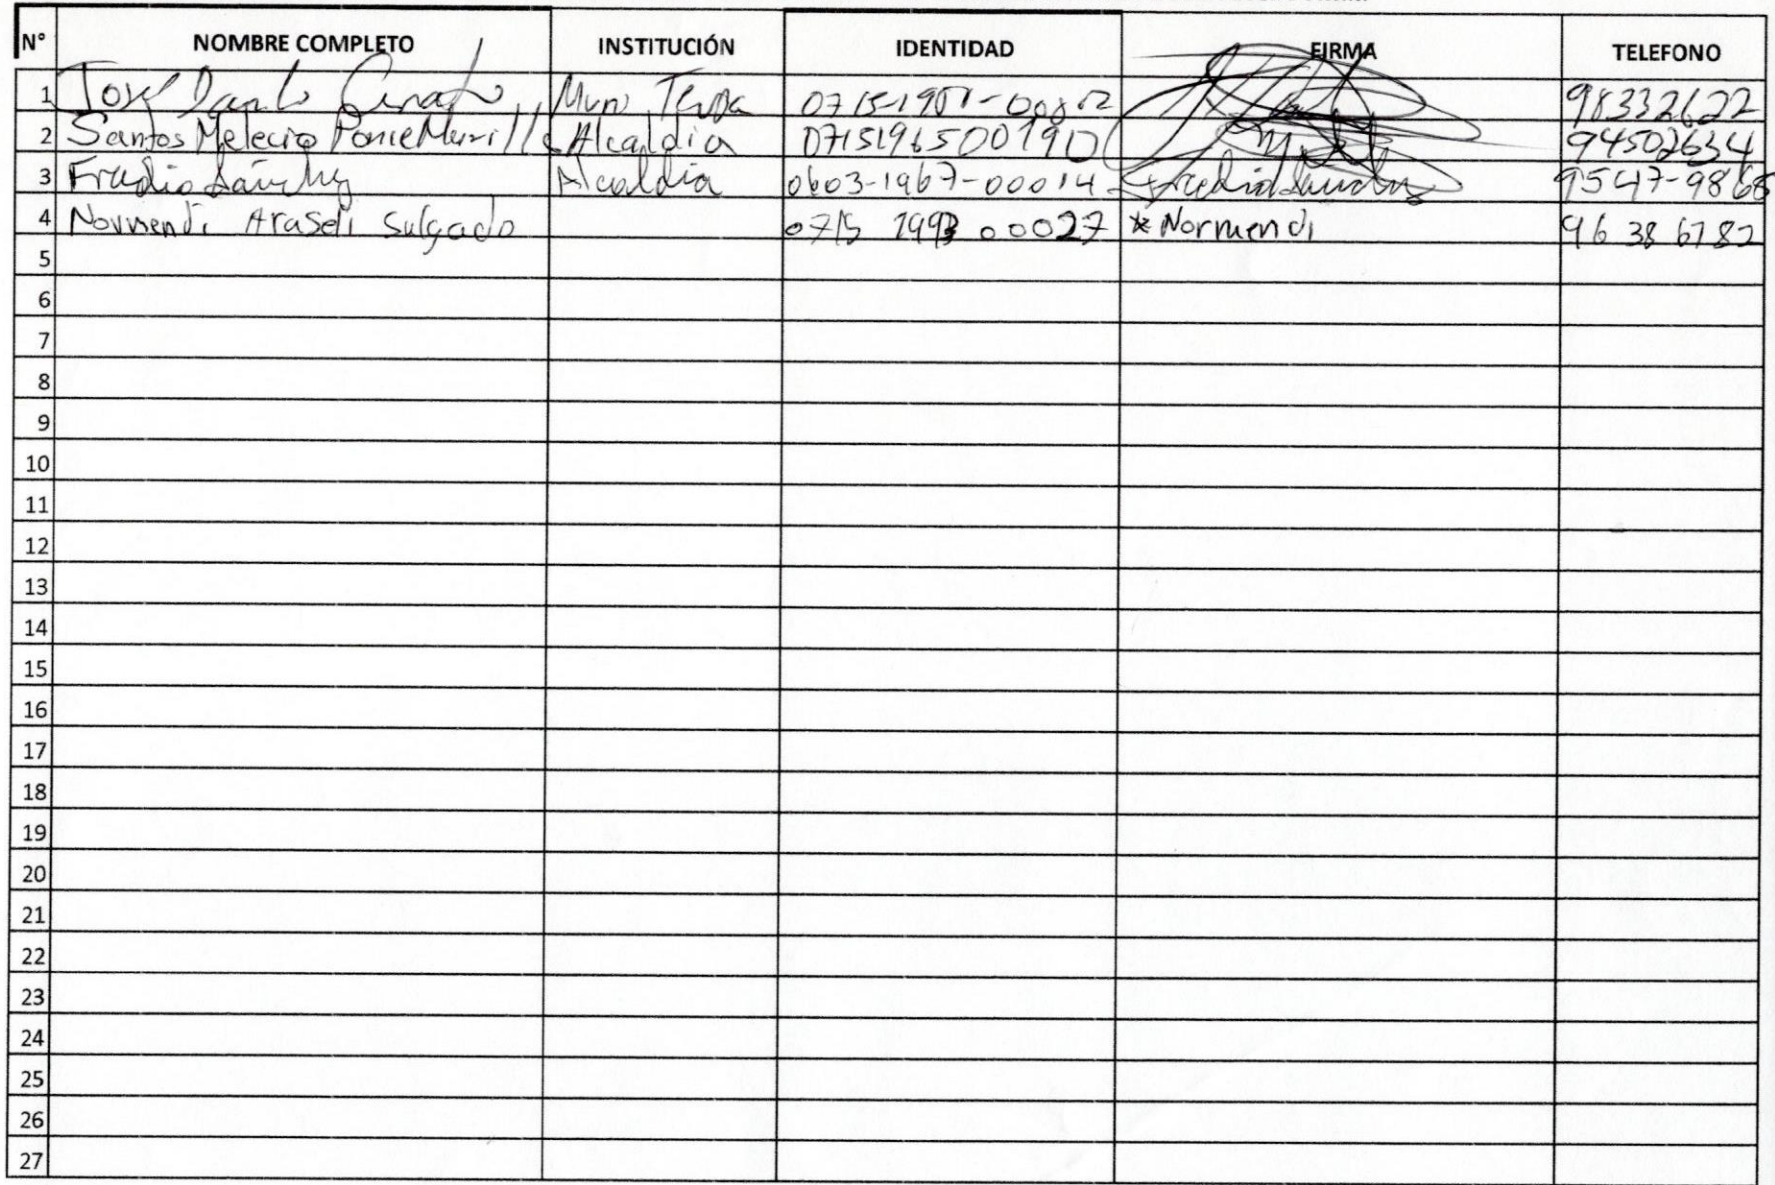 N° NOMBRE COMPLETO INSTITUCIÓN IDENTIDAD FIRMA TELEFONO
1 José Danilo Muni 98332622
2 Santos Melecio Ponce Murillo Alcaldia 0715196500190 94502634
3 Eradio Sánchez Alcaldia 0603-1967-00014 Eradio Sánchez 9547-9868
4 Normendi Araseli Salgado 0715 1993 00027 *Normendi 96 38 6782
5
6
7
8
9
10
11
12
13
14
15
16
17
18
19
20
21
22
23
24
25
26
27